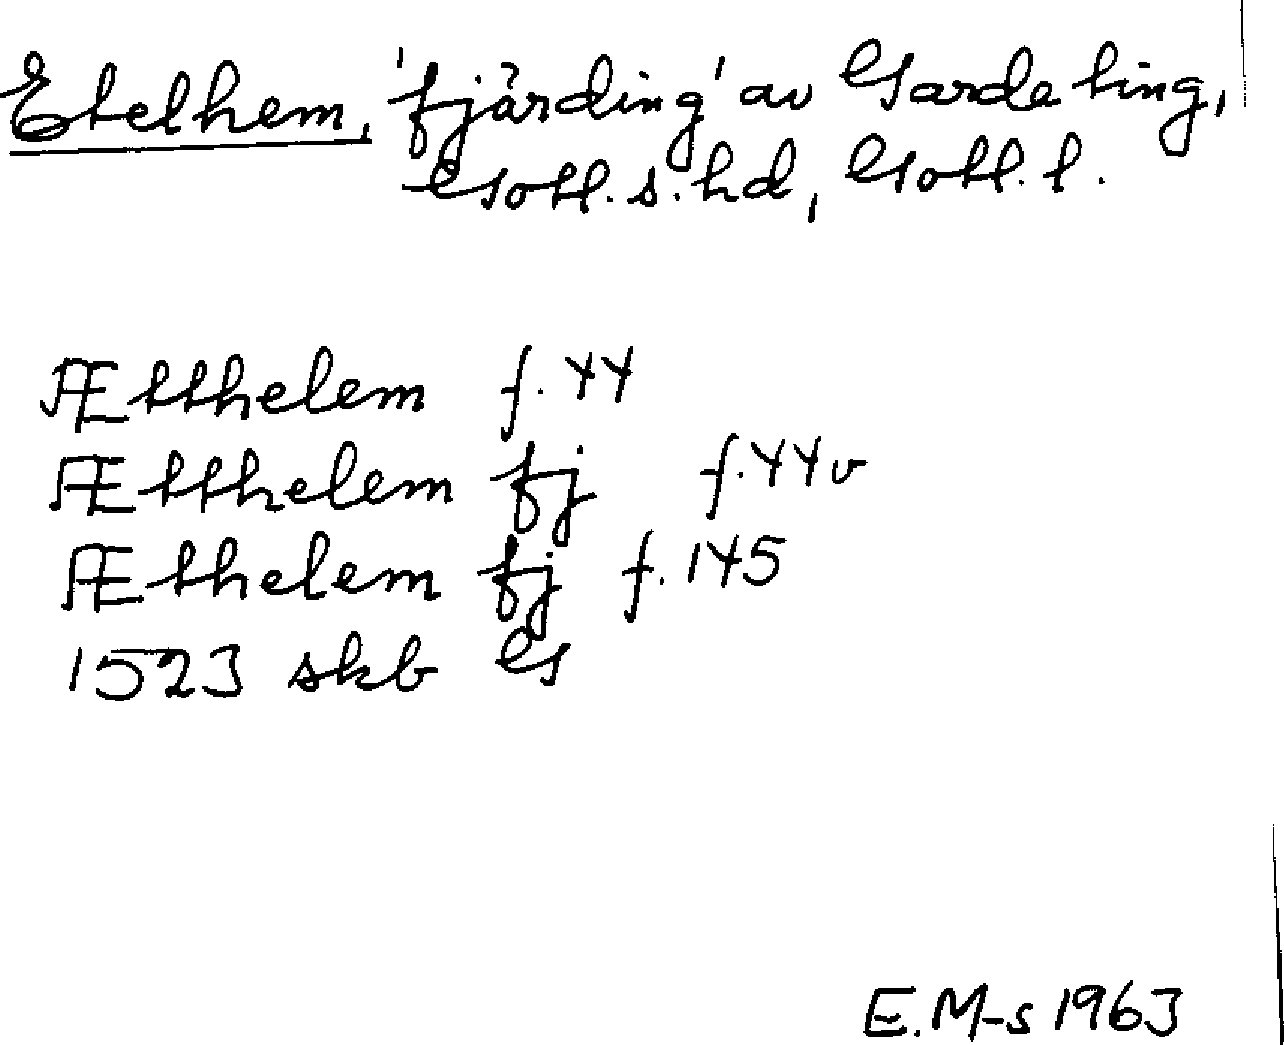 Etelhem, 'fjärding' av Garde ting,
Gotl. s. hd, Gotl. l.
Ætthelem f. 44
Ættthelem fj f. 44v
Æthelem fj f. 145
1523 skb G
E. M-s 1963